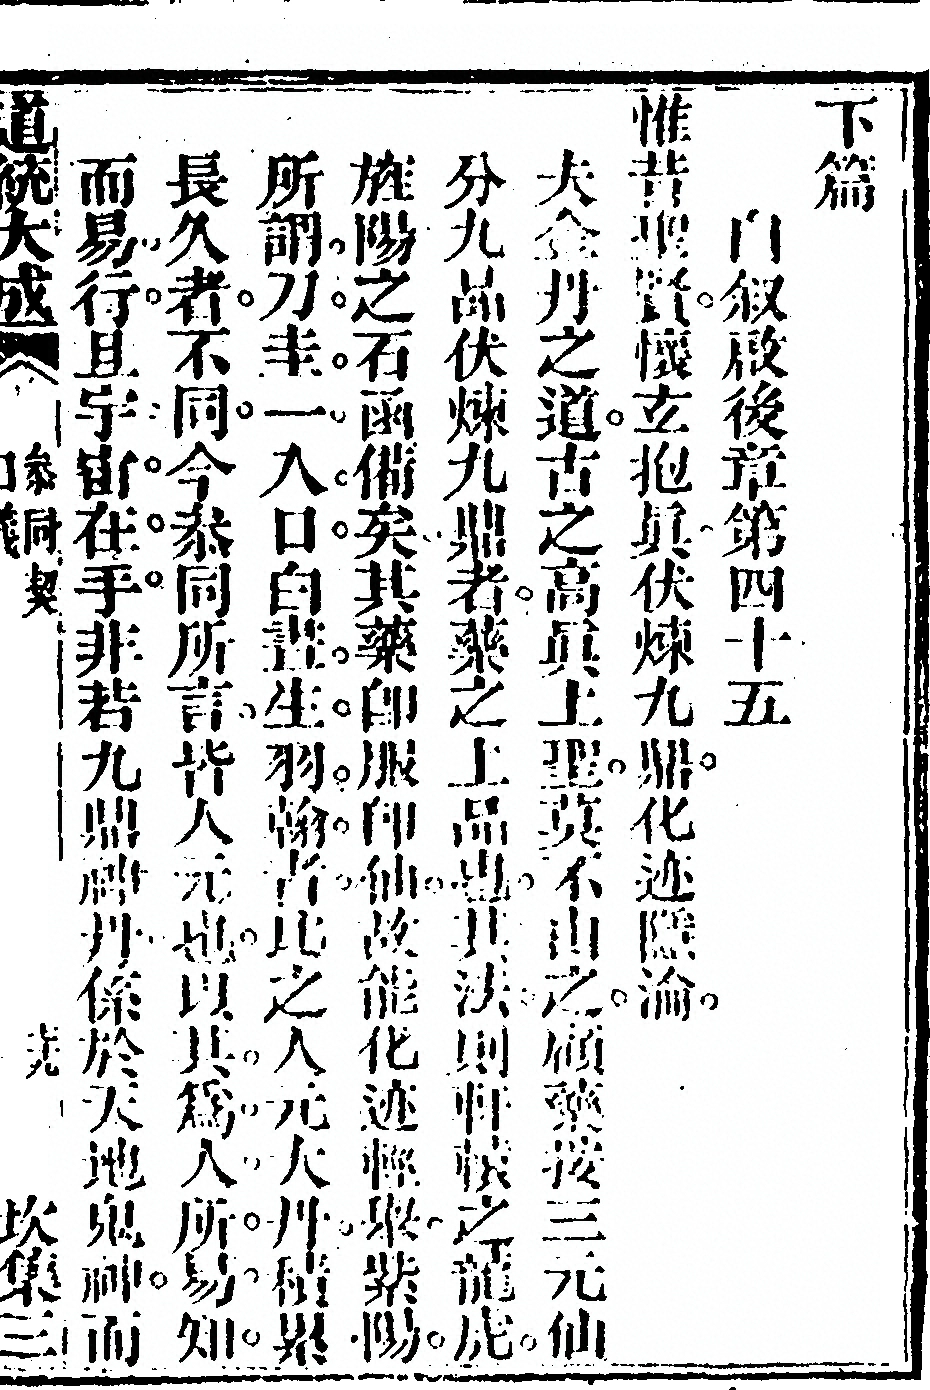 下篇
自叙啟後章第四十五
惟昔聖賢懷玄抱眞伏煉九鼎化迹隱淪
夫金丹之道古之高眞上聖莫不由之顧藥按三元仙
分九品伏煉九鼎者藥之上品也其法則軒轅之龍虎
旌陽之石函備矣其藥卽服卽仙故能化迹輕舉紫陽
所謂刀圭一入口白晝生羽翰者比之人元大丹積累
長久者不同今叅同所言皆人元也以其爲人所易知
而易行且宇宙在手非若九鼎神丹係於天地鬼神而
道統大成 叅同契口義 坎集三